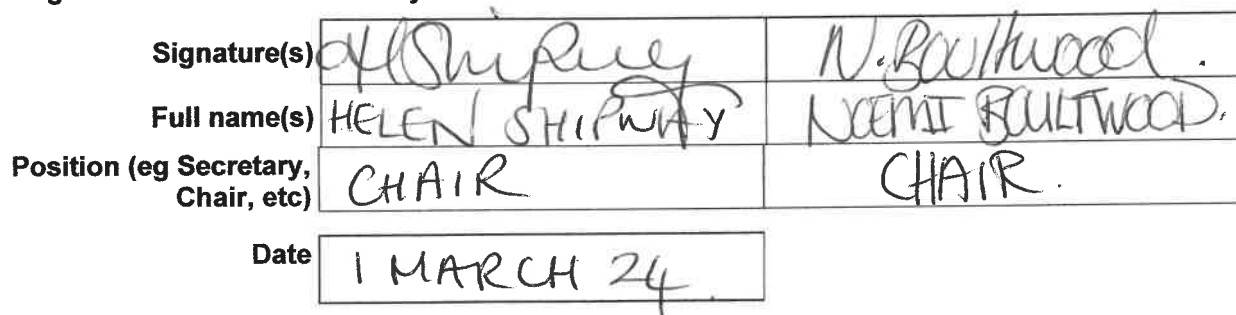 Signature(s) N. Boultwood.
Full name(s) HELEN SHIPWAY NOEMI BOULTWOOD.
Position (eg Secretary, Chair, etc) CHAIR CHAIR.
Date 1 MARCH 24